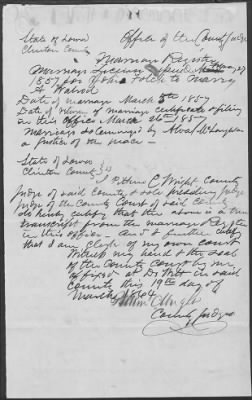 State of Iowa } Office of the County Judge
Clinton County }
Marriage Register
Marriage License issued March 4th
1857 for John Foltz to Marry
A Walrod
Date of marriage March 5th 1857
Date of return of marriage certificate & filing
in this office March 26th 1857
Marriage solemnized by Alvat McLaughlin
a Justice of the peace
State of Iowa }
Clinton County } SS I, C Wright County
Judge of said County & sole presiding Judge
Judge of the County Court of said County
do hereby certify that the above is a true
transcript from the marriage Register
in this office - And I further certify
that I am clerk of my own court
Witness my hand & the seal
of the County Court by me
affixed at De Witt in said
County this 19th day of
March 1864
County Judge